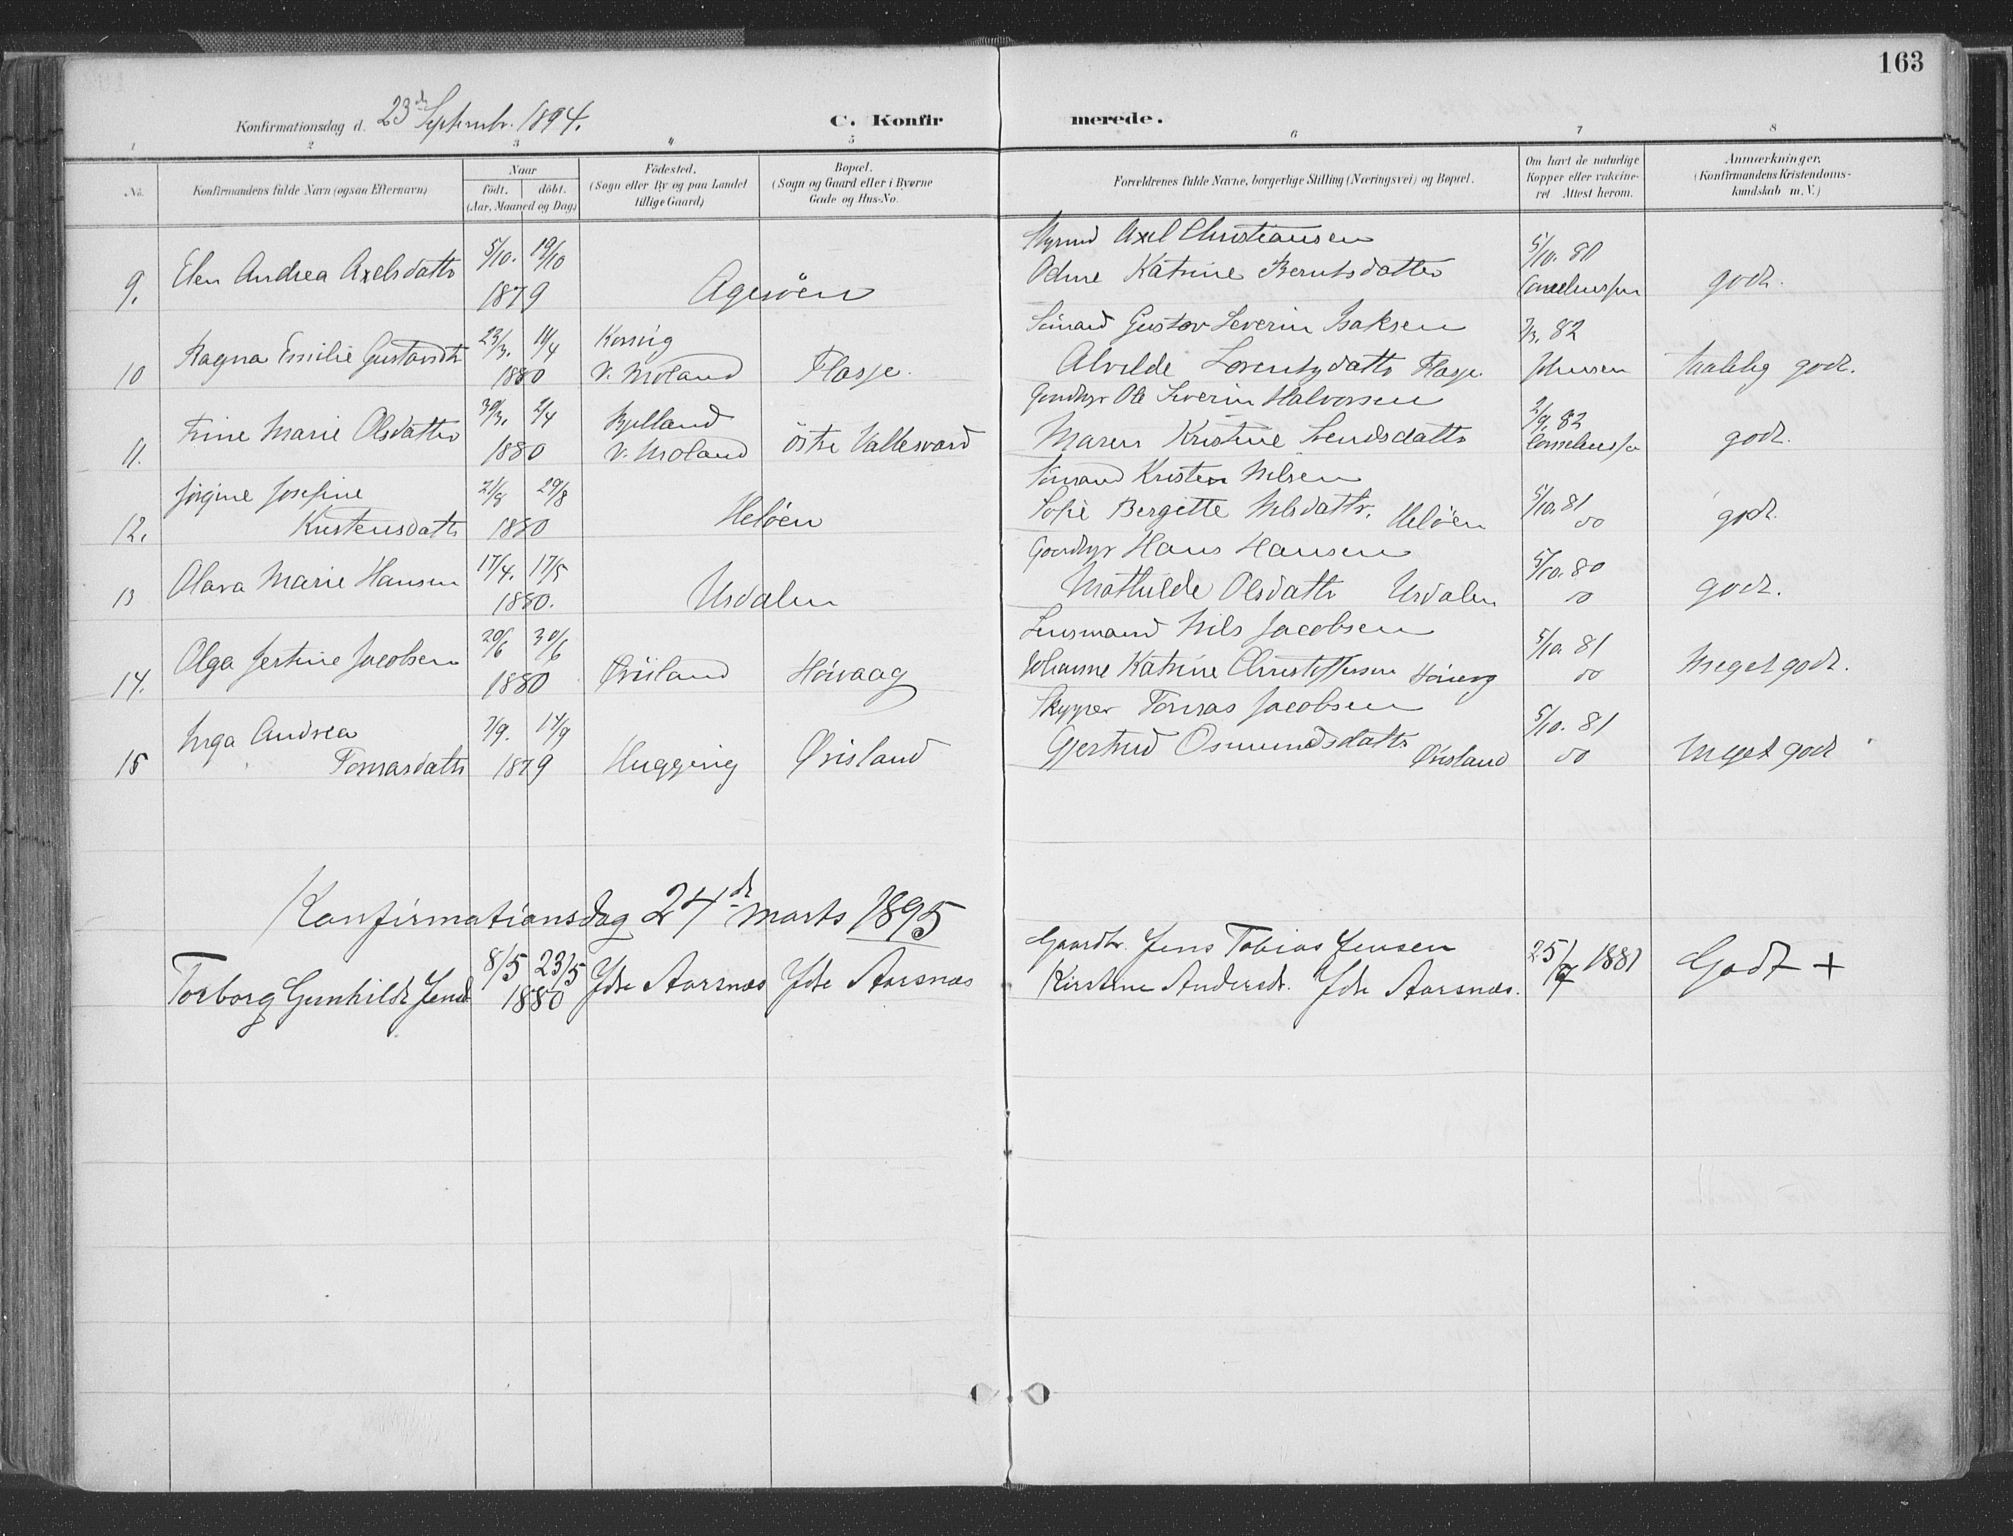 163
Konfirmationsdag d. 23d Septembr. 1894.
C. Konfirmerede.
1 2 3 4 5 6 7 8
No.
Konfirmandens fulde Navn (ogsaa Efternavn)
Naar
födt. döbt.
(Aar, Maaned og Dag)
Födested.
(Sogn eller By og paa Landet
tillige Gaard)
Bopæl.
(Sogn og Gaard eller i Byerne
Gade og Hus-No.
Forældrenes fulde Navne, borgerlige Stilling (Næringsvei) og Bopæl.
Om havt de naturlige
Kopper eller vakcine-
ret. Attest herom.
Anmærkninger.
(Konfirmandens Kristendoms-
kundskab m. V.)
9. Elen Andrea Axelsdatter 5/10. 19/10 1879 Agerøen
Styrmd Axel Christiansen
Odine Katrine Berntsdatter
5/10. 80
godt.
10 Ragna Emilie Gustavsdt 23/3. 1880
V. Moland Flasje.
Sömand Gustav Severin Isaksen
Alvilde Lorentzdattr Flasje
82
Johnsen
Maadelig godt.
11. Trine Marie Olsdatter 30/3. 2/4 1880
Bjelland
V. Moland Östre Vallesværd
Gaardbgr Ole Severin Halvorsen
Maren Kristine Svendsdattr
2/9. 82
godt.
12. Jörgine Josefine
Kristensdattr
21/8 29/8
1880 Helöen
Sömand Kristen Nilsen
Sofie Bergitte Nilsdattr. Helöen
5/10. 81
do
godt.
13 Olava Marie Hansen 17/4. 17/5
1880. Usdalen
Gaardbgr Hans Hansen
Mathilde Olsdattr Usdalen
5/10. 80
do
godt.
14. Olga Jertine Jacobsen 20/6 30/6
1880 Øvisland Höivaag
Lensmand Nils Jacobsen
Johanne Katrine Christoffersen
5/10. 81
do
Meget godt.
15 Inga Andrea
Tomasdattr
7/9. 14/9
1879 Øvisland
Skypper Tomas Jacobsen
Gjertrud Osmundsdattr
Øvisland
5/10. 81
do
Meget godt
Konfirmationsdag 24d Marts 1895
Torborg Gunhilde Jensd 8/5 23/5
1880
Ydre Aarsnæs Ydre Aarsnæs
Gaardbr. Jens Tobias Jensen
Kirstine Andersdt. Ydr Aarsnæs.
25/7 1881
Godt +